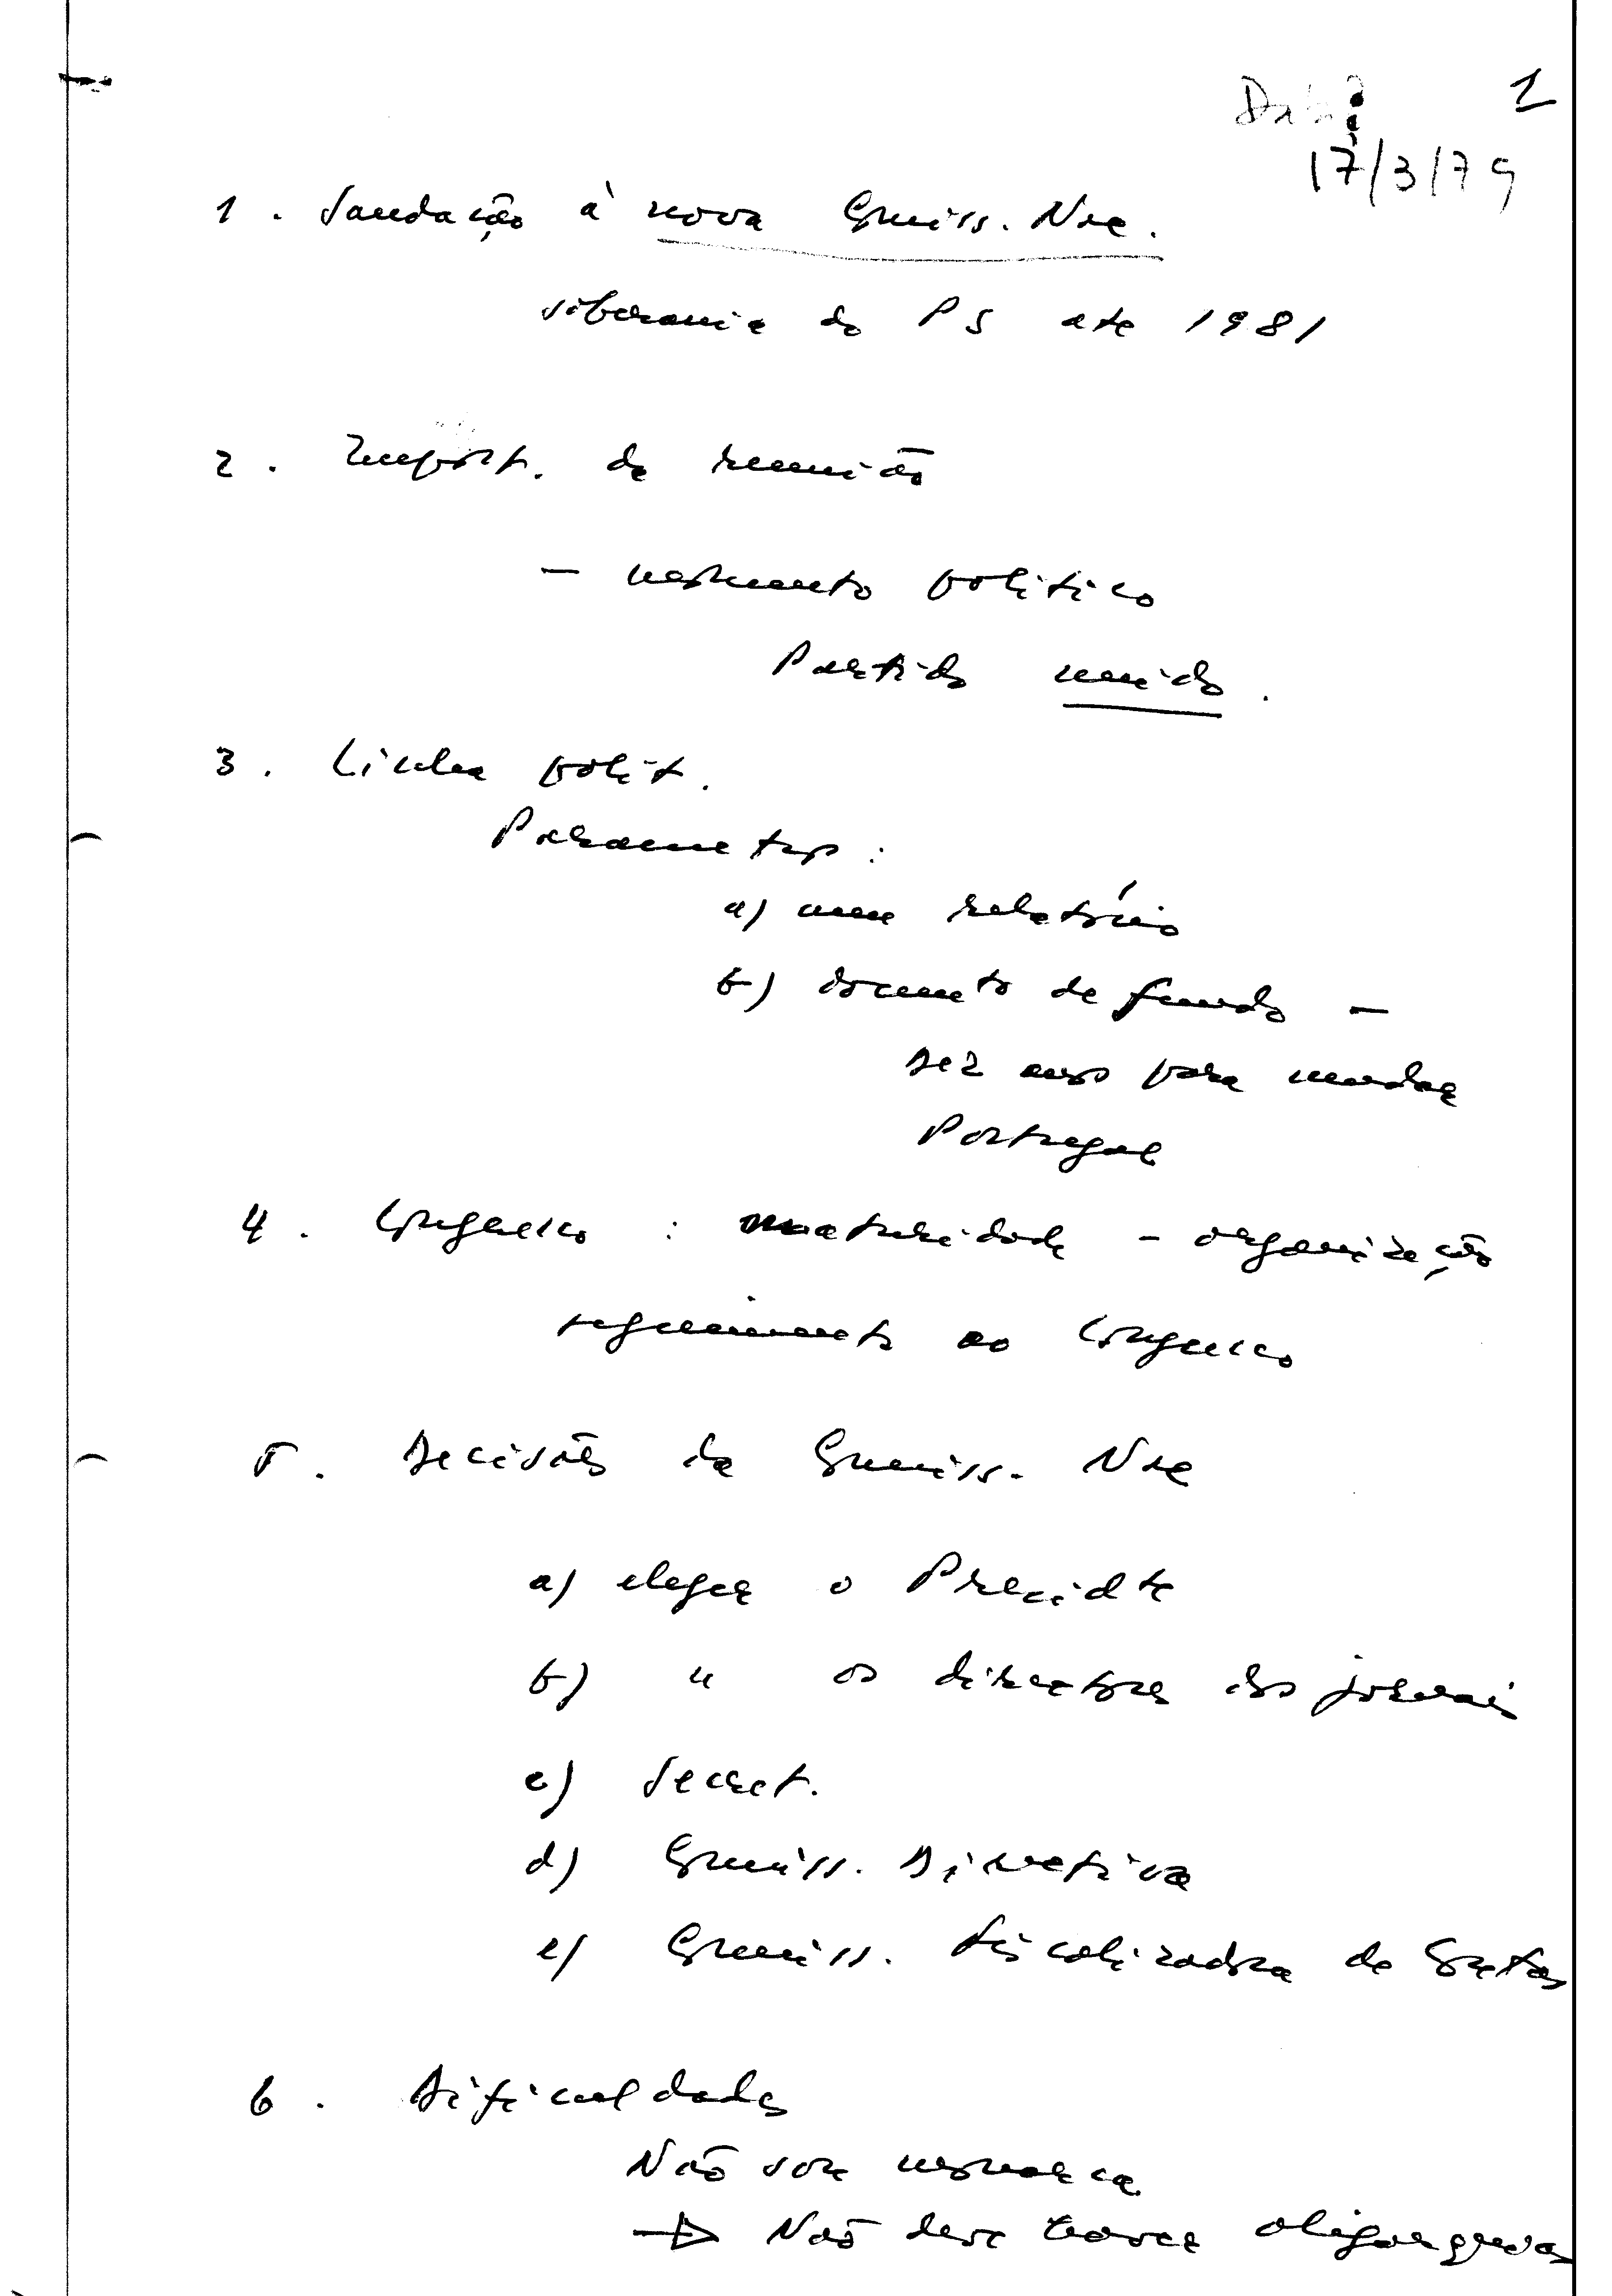 1
Data?
17/3/79
1. Saudação à nova Comiss. Nac.
soberania do PS até 1981
2. Import. da reunião
- momento político
Partido unido.
3. Linha polít.
Parametros:
a) meu relatório
b) documento de fundo -
Dez anos para mudar
Portugal
4. Congresso : maturidade - organização
seguimento ao Congresso
5. Decisões da Comiss. Nac
a) eleger o Presidte
b) " os directores dos jornais
c) Secret.
d) Comiss. Directiva
e) Comiss. Fiscalizadora de Contas
6. Dificuldades
Não sou monarca
→ Não deve haver